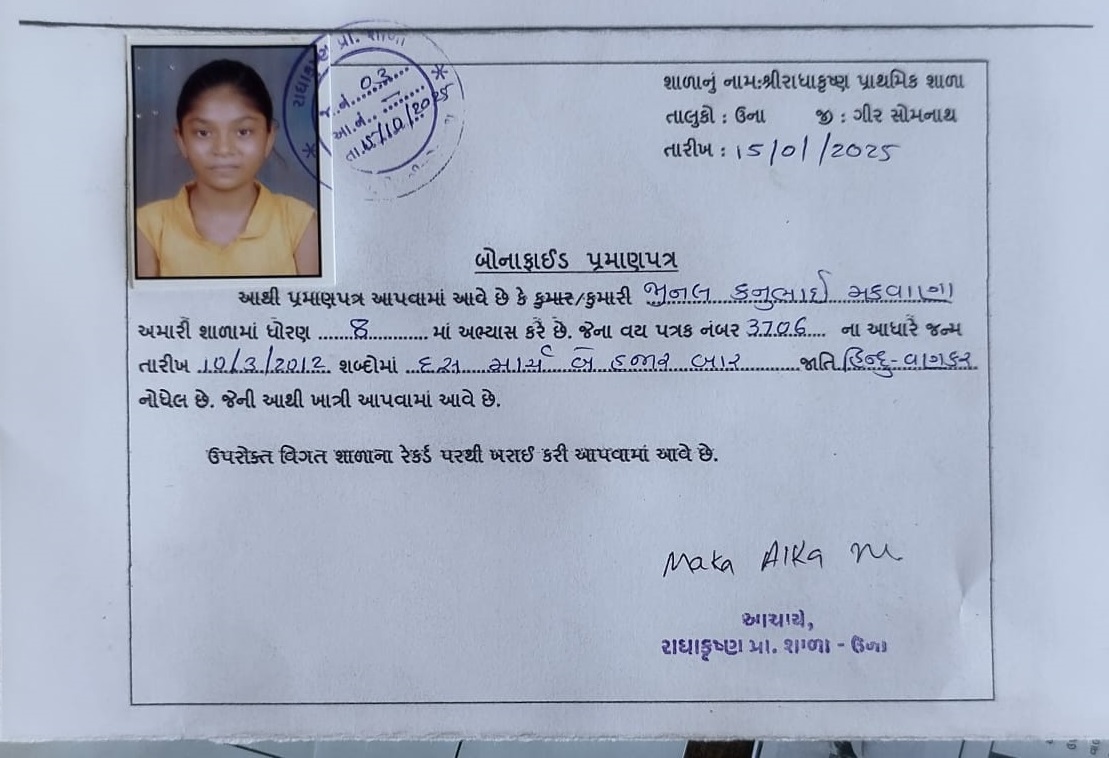 રાધાકૃષ્ણ પ્રા. શાળા
જ. નં. 03
આ. નં. –
તા. 15/10/2025
શાળાનું નામ:શ્રીરાધાકૃષ્ણ પ્રાથમિક શાળા
તાલુકો : ઉના જી : ગીર સોમનાથ
તારીખ : 15/01/2025
બોનાફાઈડ પ્રમાણપત્ર
આથી પ્રમાણપત્ર આપવામાં આવે છે કે કુમાર/કુમારી જીનલ કનુભાઈ મકવાણા
અમારી શાળામાં ધોરણ 8 માં અભ્યાસ કરે છે. જેના વય પત્રક નંબર 3706 ના આધારે જન્મ
તારીખ 10/3/2012 શબ્દોમાં દસ માર્ચ બે હજાર બાર જાતિ હિન્દુ-વાણકર
નોધેલ છે. જેની આથી ખાત્રી આપવામાં આવે છે.
ઉપરોક્ત વિગત શાળાના રેકર્ડ પરથી ખરાઈ કરી આપવામાં આવે છે.
Maka Alka m
આચાર્ય,
રાધાકૃષ્ણ પ્રા. શાળા - ઉના